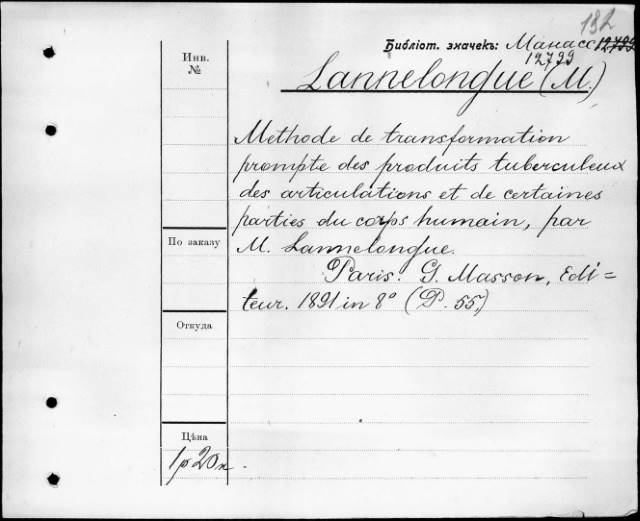 132
Библіот. значекъ: Манасс 12799
12799
Инв.
№
Lannelongue (M.)
Methode de transformation
prompte des produits tuberculeux
des articulations et de certaines
parties du corps humain, par
M. Lannelongue.
Paris. G. Masson, Edi=
teur. 1891 in 8° (P. 55.)
По заказу
Откуда
Цѣна
1 р 20 к.